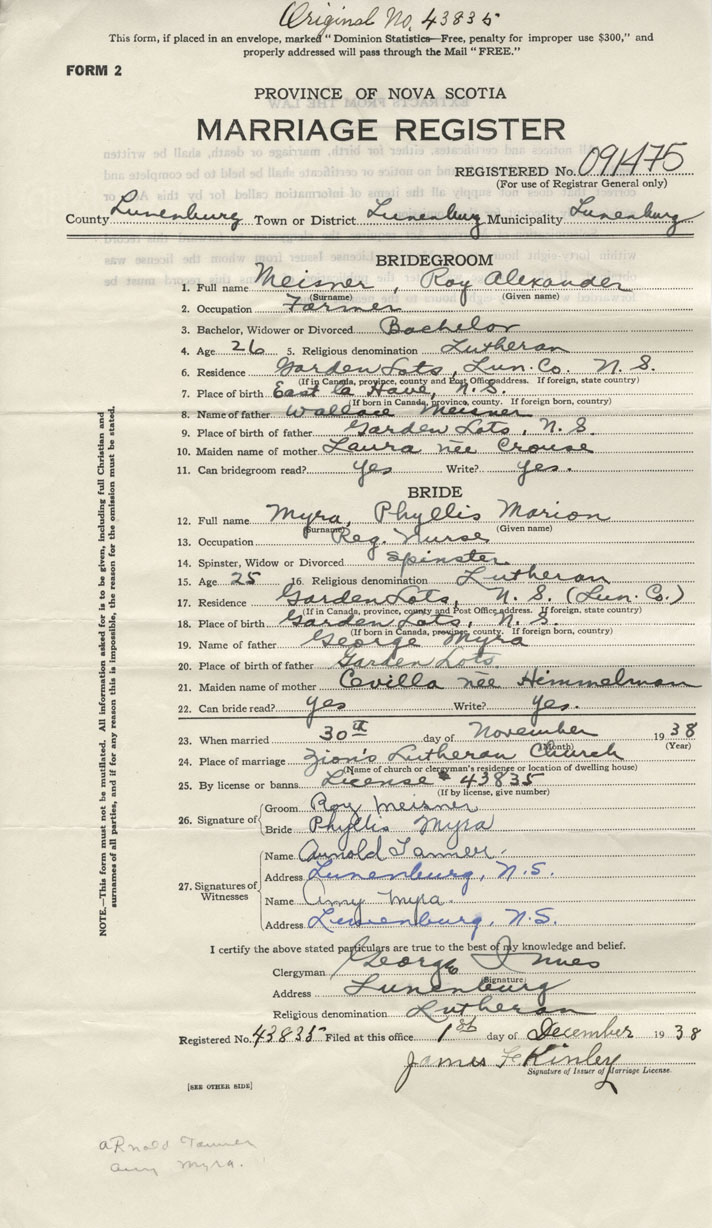 Original No. 43835
This form, if placed in an envelope, marked "Dominion Statistics—Free, penalty for improper use $300," and
properly addressed will pass through the Mail "FREE."
FORM 2
PROVINCE OF NOVA SCOTIA
MARRIAGE REGISTER
REGISTERED No. 091475
(For use of Registrar General only)
County Lunenburg Town or District Lunenburg Municipality Lunenburg
BRIDEGROOM
1. Full name Meisner, Roy Alexander
(Surname) (Given name)
2. Occupation Farmer
3. Bachelor, Widower or Divorced Bachelor
4. Age 26 5. Religious denomination Lutheran
6. Residence Garden Lots, Lun. Co. N. S.
(If in Canada, province, county and Post Office address. If foreign, state country)
7. Place of birth East la Have, N. S.
(If born in Canada, province, county. If foreign born, country)
8. Name of father Wallace Meisner
9. Place of father Garden Lots, N. S.
10. Maiden name of mother Laura née Crouse
11. Can bridegroom read? Yes Write? Yes.
BRIDE
12. Full name Myra, Phyllis Marion
(Surname) (Given name)
13. Occupation Reg. Nurse
14. Spinster, Widow or Divorced Spinster
15. Age 25 16. Religious denomination Lutheran
17. Residence Garden Lots, N. S. (Lun. Co.)
(If in Canada, province, county and Post Office address. If foreign, state country)
18. Place of birth Garden Lots, N. S.
(If born in Canada, province, county. If foreign born, country)
19. Name of father George Myra
20. Place of birth of father Garden Lots.
21. Maiden name of mother Cevilla née Himmelman
22. Can bride read? Yes Write? Yes.
23. When married 30th day of November 1938
(Month) (Year)
24. Place of marriage Zion's Lutheran Church
(Name of church or clergyman's residence or location of dwelling house)
25. By license or banns License # 43835
(If by license, give number)
26. Signature of
Groom Roy Meisner
Bride Phyllis Myra
27. Signatures of Witnesses
Name Arnold Tanner.
Address Lunenburg, N.S.
Name Amy Myra.
Address Lunenburg, N.S.
I certify the above stated particulars are true to the best of my knowledge and belief.
Clergyman George Innes
(Signature)
Address Lunenburg
Religious denomination Lutheran
Registered No. 43835 Filed at this office 1st day of December 1938
James F Kinley
Signature of Issuer of Marriage License.
[SEE OTHER SIDE]
Arnold Tanner
Amy Myra.
NOTE.—This form must not be mutilated. All information asked for is to be given, including full Christian and
surnames of all parties, and if for any reason this is impossible, the reason for the omission must be stated.